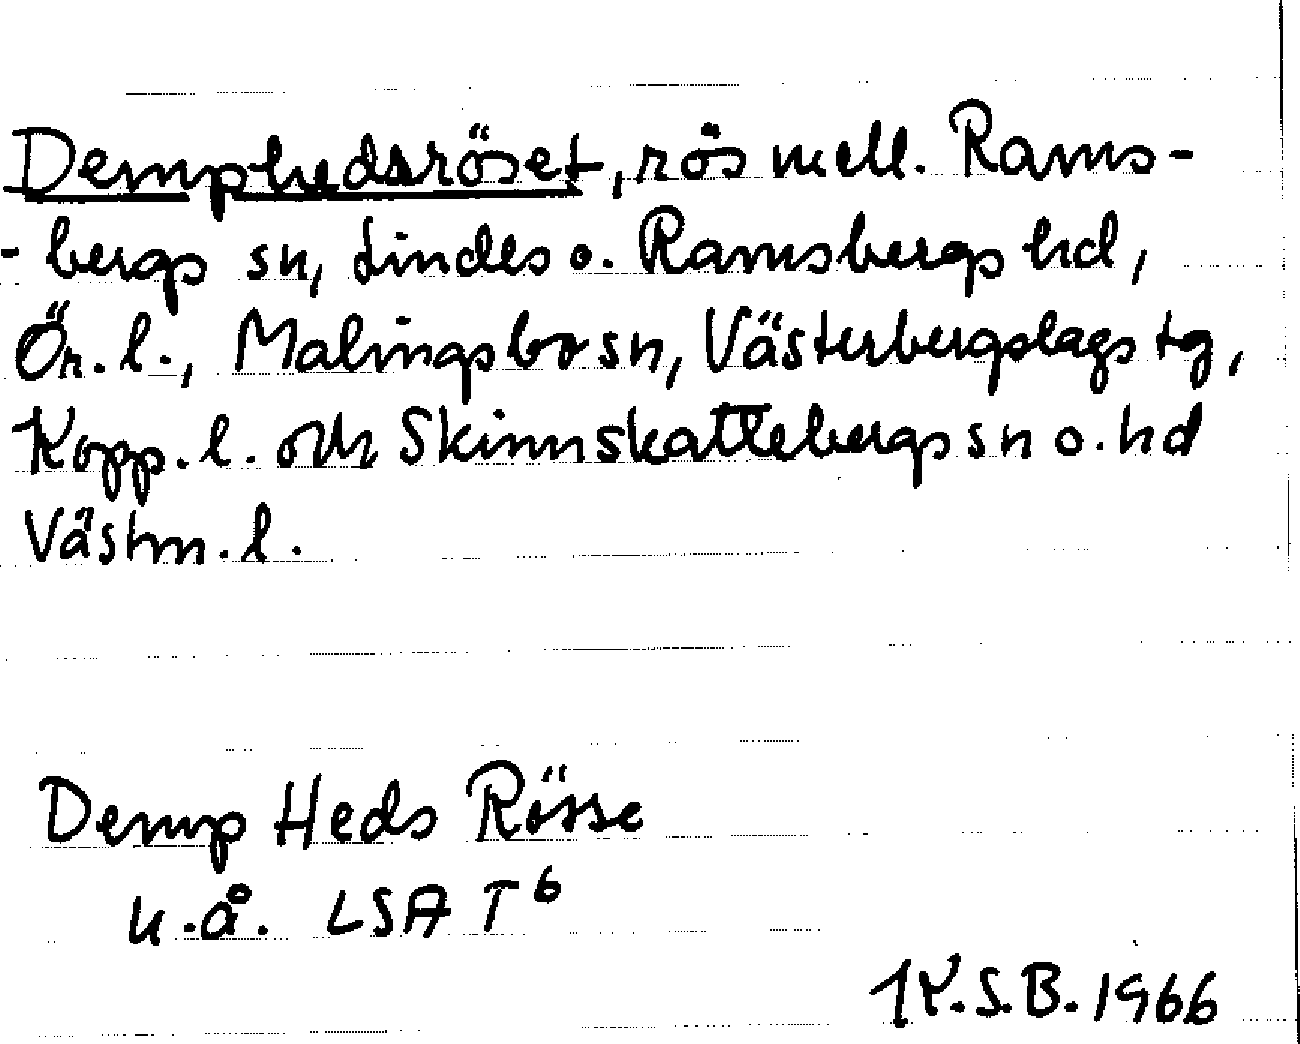 Demphedsröset, rös mell. Rams-
- bergs sn, Lindes o. Ramsbergs hd,
Ör. l., Malingsbo sn, Västerbergslags tg,
Kopp. l. och Skinnskattebergs sn o. hd
Västm. l.
Demp Heds Rösse
u.å. LSA T6
K.S.B. 1966